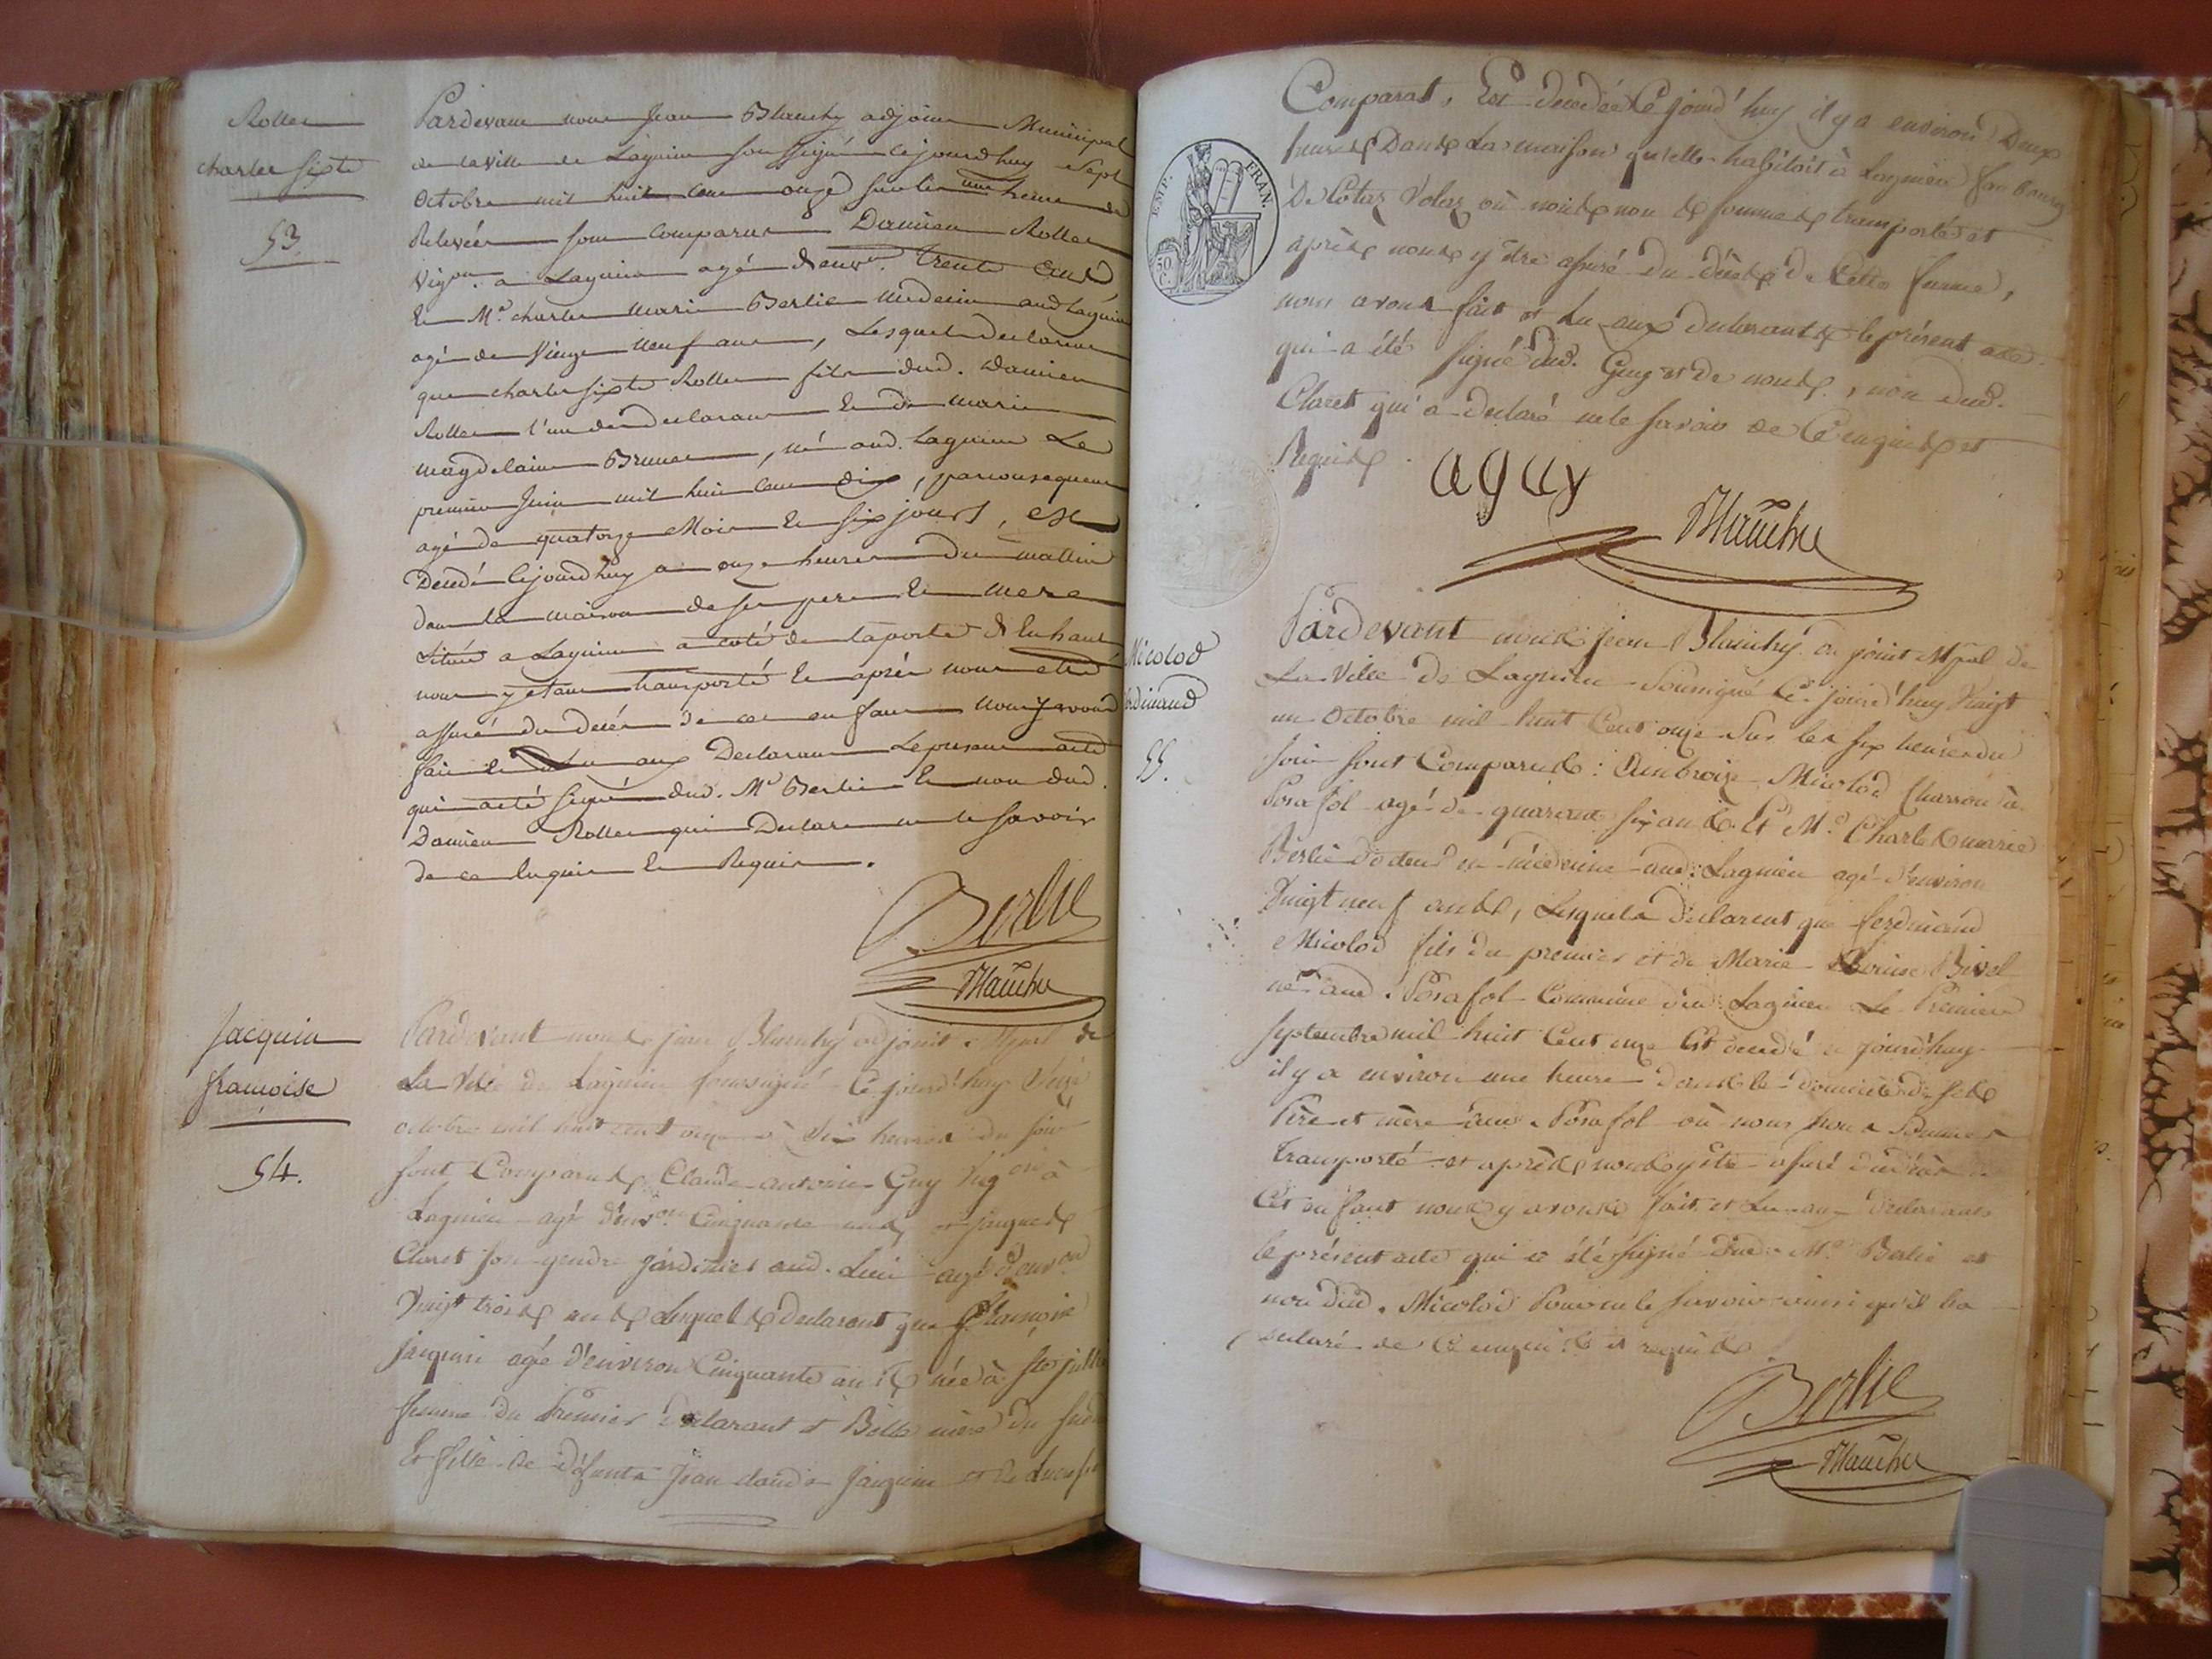 Rollet
charles sixte
53.
Pardevant nous Jean Blanchy adjoint Municipal
de la Ville de Lagnieu soussigné cejourdhuy sept
octobre mil huit cent onze sur les une heure de
Relevée sont comparus Damien Rollet
vigon. a Lagnieu agé d'envon. trente cinq
Et Mr. charles marie Berlie medecin aud Lagnieu
agé de vingt neuf ans, Lesquels declarent
que charles sixte Rollet fils dud. Damien
Rollet l'un des declarans Et de marie
magdelaine Brunet, né aud. Lagnieu Le
premier Juin mil huit cent dix, par consequent
agé de quatorze Mois Et six jours, est
Decedé cejourdhuy a onze heures du mattin
dans la maison de ses pere Et mere
située a Lagnieu a coté de la porte d'Enhaut
nous y etant transporté Et aprés nous etre
assuré du decés de cet enfant nous y avons
fait et Lu aux Declarans Le present acte
qui a eté signé dud. Mr Berlie Et non dud.
Damien Rollet qui Declare ne le savoir
de ce Enquis Et Requis.
Berlie
Blanchy
Jacquin
francoise
54.
Pardevant nous jean Blanchy adjoint Mpal de
La Ville de Lagnieu soussigné Ce jourd'huy Seize
octobre mil huit cent onze à Six heures du soir
sont Comparus Claude antoine Guy Vigon à
Lagnieu agé d'envon Cinquante ans et jacques
Claret son gendre jardinier aud. Lieu agé d'envon
Vingt trois ans Lesquels declarent que francoise
jacquin agé d'environ Cinquante ans née à Ste julie
femme du Premier declarant et Belle mère du Second
Et fille de défunts Jean claude Jacquin et de
Comparat, Est decedée Ce jourd'huy il y a environ Deux
heures Dans La maison qu'elle habitoit à Lagnieu faubourg
De où nous nous sommes transporté et
après nous y être assuré du décès De Cette femme,
nous avons fait et Lu aux declarants le présent acte
qui a été signé dud. Guy et De nous, non dud.
Claret qui a declaré ne le savoir de Ce enquis et
Requis.
EMP. FRAN.
50 C.
a guy
Blanchy
Micolod
ferdinand
55.
Pardevant nous Jean Blanchy adjoint Mpal de
La Ville de Lagnieu Soussigné Ce jourd'huy Vingt
un Octobre mil huit Cent onze Sur les six heures du
soir sont Comparus: Ambroise Micolod Charron à
Posafol agé de quarante six ans Et Mr. Charles marie
Berlie docteur en médecine aud: Lagnieu agé d'environ
Vingt neuf ans, Lesquels déclarent que ferdinand
Micolod fils du premier et de Marie Louise Bivel
né aud. Posafol Commune dud. Lagnieu Le Premier
Septembre mil huit Cent onze Est decedé ce jourd'huy
il y a environ une heure dans le domicile de ses
Père et mère aud. Posafol où nous nous Sommes
Transporté et après nous y être assuré du décès de
Cet enfant nous y avons fait et Lu aux declarants
le présent acte qui a été signé dud. Mr Berlie et
non dud. Micolod Pour ne le savoir ainsi qu'il l'a
declaré de Ce enquis et requis
Berlie
Blanchy